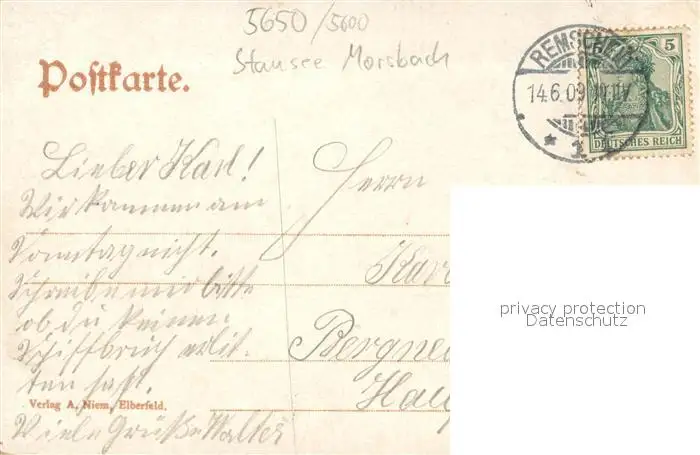 5650/5600
Stausee Morsbach
Postkarte.
REMSCHEID
14.6.09
* 1
5
DEUTSCHES REICH
Lieber Karl!
Wir kommen am
Sonntag nicht.
Schreibe mir bitte
ob du keinen
Schiffbruch erlit-
ten hast.
Viele Grüße Walter
Herrn
Karl
Bergne
Hau
Verlag A. Niem, Elberfeld.
privacy protection
Datenschutz